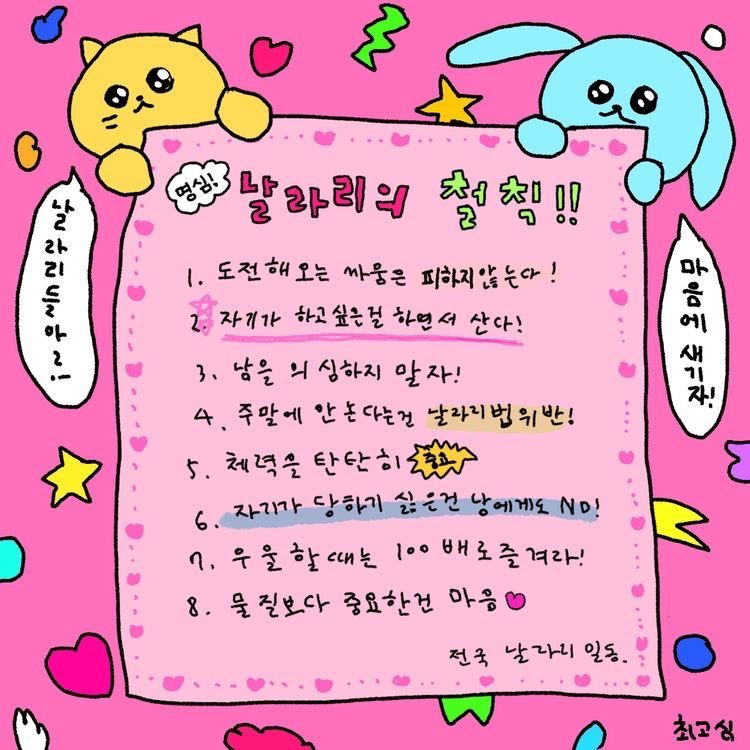 명심!
날라리의 철칙!!
날라리들아!
마음에 새기자!
1. 도전해오는 싸움은 피하지않는다!
2. 자기가 하고싶은걸 하면서 산다!
3. 남을 의심하지 말자!
4. 주말에 안 논다는건 날라리법위반!
5. 체력을 탄탄히 중요
6. 자기가 당하기 싫은건 남에게도 NO!
7. 우울할때는 100배로 즐겨라!
8. 물질보다 중요한건 마음
전국 날라리 일동.
최고심